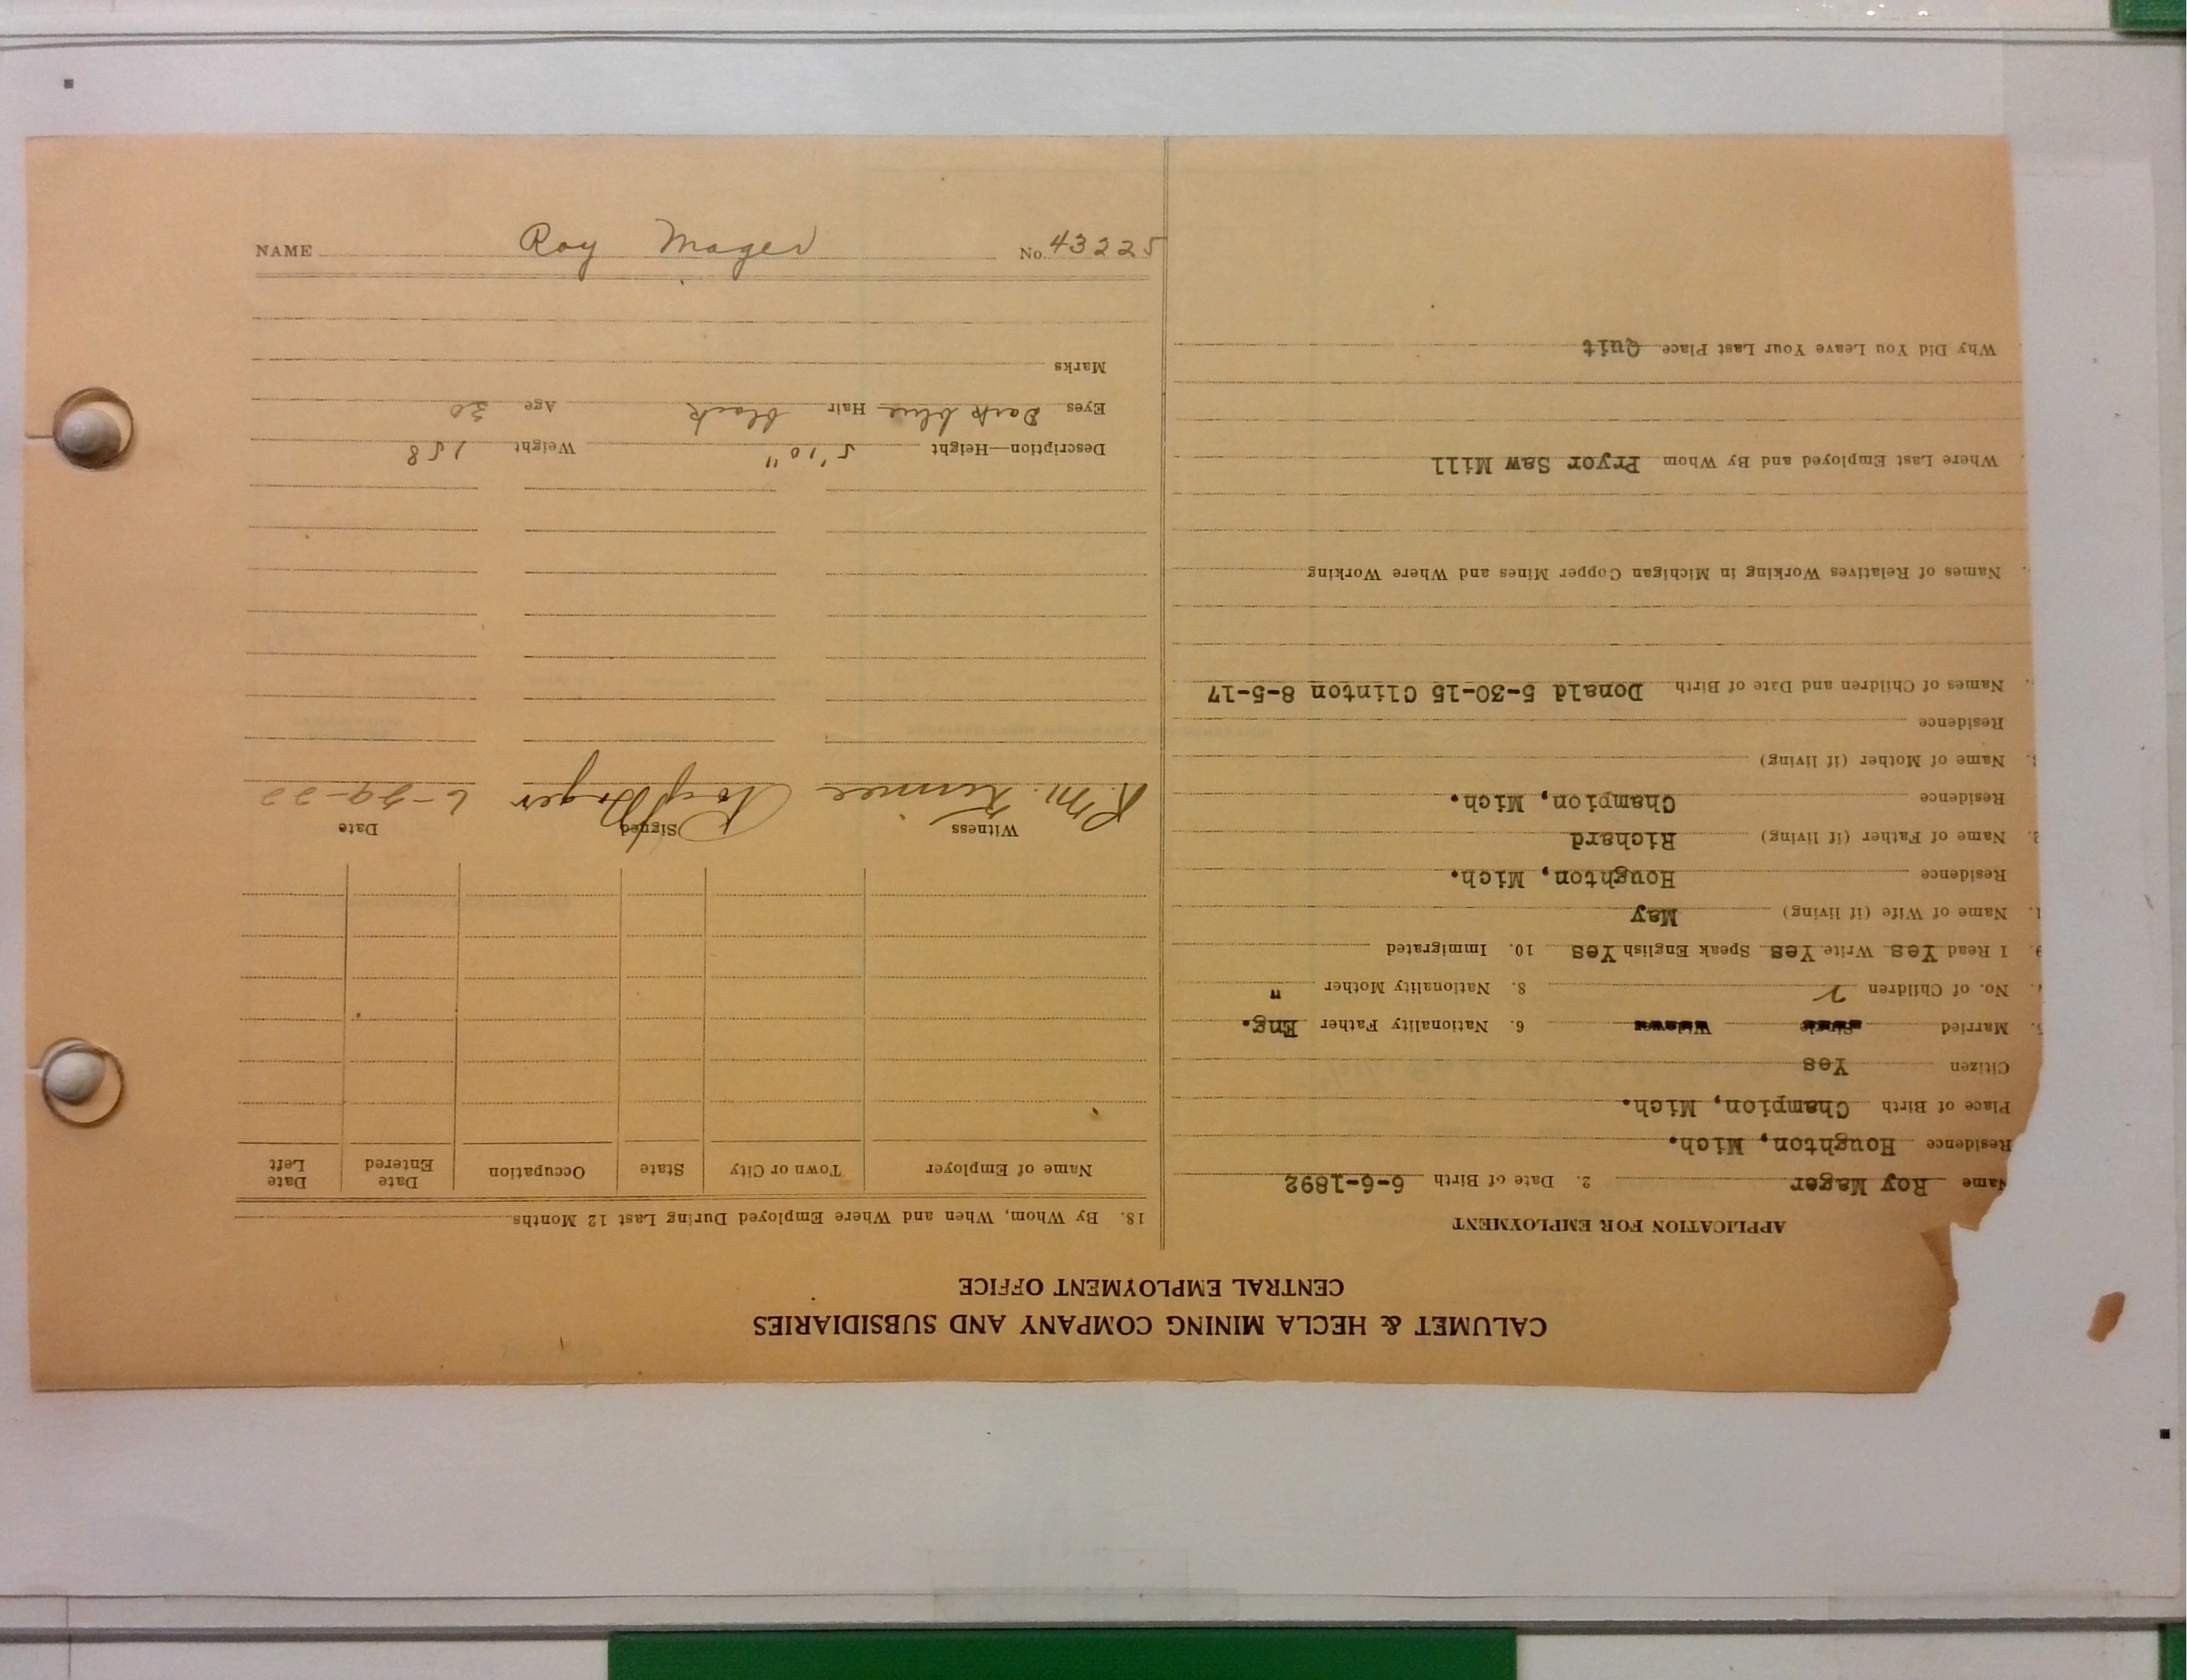 CALUMET & HECLA MINING COMPANY AND SUBSIDIARIES
CENTRAL EMPLOYMENT OFFICE
APPLICATION FOR EMPLOYMENT
Name Roy Mager 2. Date of Birth 6-6-1892
Residence Houghton, Mich.
Place of Birth Champion, Mich.
Citizen Yes
Married Single Widower 6. Nationality Father Eng.
No. of Children 2 8. Nationality Mother "
I Read Yes Write Yes Speak English Yes 10. Immigrated
Name of Wife (if living) May
Residence Houghton, Mich.
Name of Father (if living) Richard
Residence Champion, Mich.
Name of Mother (if living)
Residence
Names of Children and Date of Birth Donald 5-30-15 Clinton 8-5-17
Names of Relatives Working in Michigan Copper Mines and Where Working
Where Last Employed and By Whom Pryor Saw Mill
Why Did You Leave Your Last Place Quit
18. By Whom, When and Where Employed During Last 12 Months
Name of Employer Town or City State Occupation Date Entered Date Left
Witness Signed Date
R. M. Roy Mager 6-29-22
Description—Height 5'10" Weight 158
Eyes Dark blue Hair black Age 30
Marks
NAME Roy Mager No. 43225